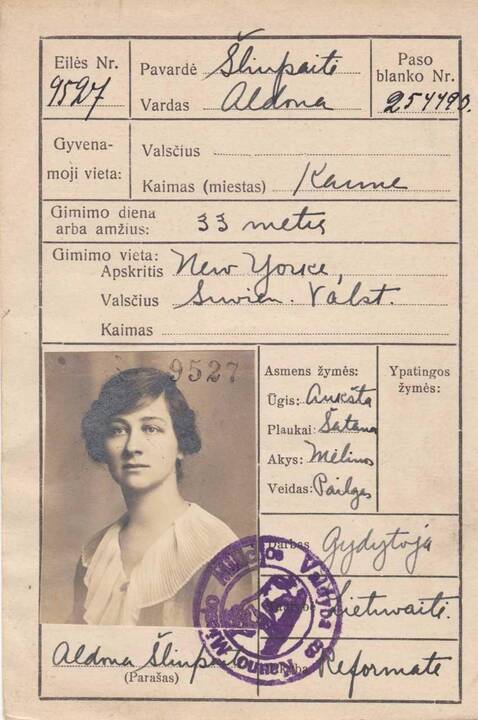 Eilės Nr.
9527
Pavardė Šliupaitė
Vardas Aldona
Paso
blanko Nr.
254490.
Gyvena-
moji vieta:
Valsčius
Kaimas (miestas) Kaune
Gimimo diena
arba amžius: 33 metis
Gimimo vieta:
Apskritis New Yorke,
Valsčius Suvien. Valst.
Kaimas
9527
Asmens žymės:
Ūgis: Aukšta
Plaukai: Šatana
Akys: Mėlinos
Veidas: Pailgas
Ypatingos
žymės:
Darbas Gydytoja
Lietuvaitė.
Reformatė
Aldona Šliupaitė
(Parašas)
Kauno Miesto Valdyba